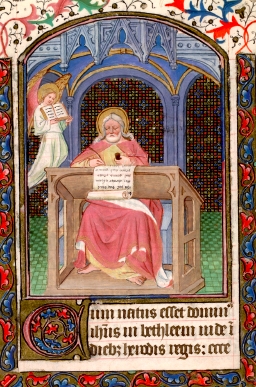 Cum natus esset domin⁹
ih̄us in bethleem iude ī
diebꝫ herodis regis: ecce